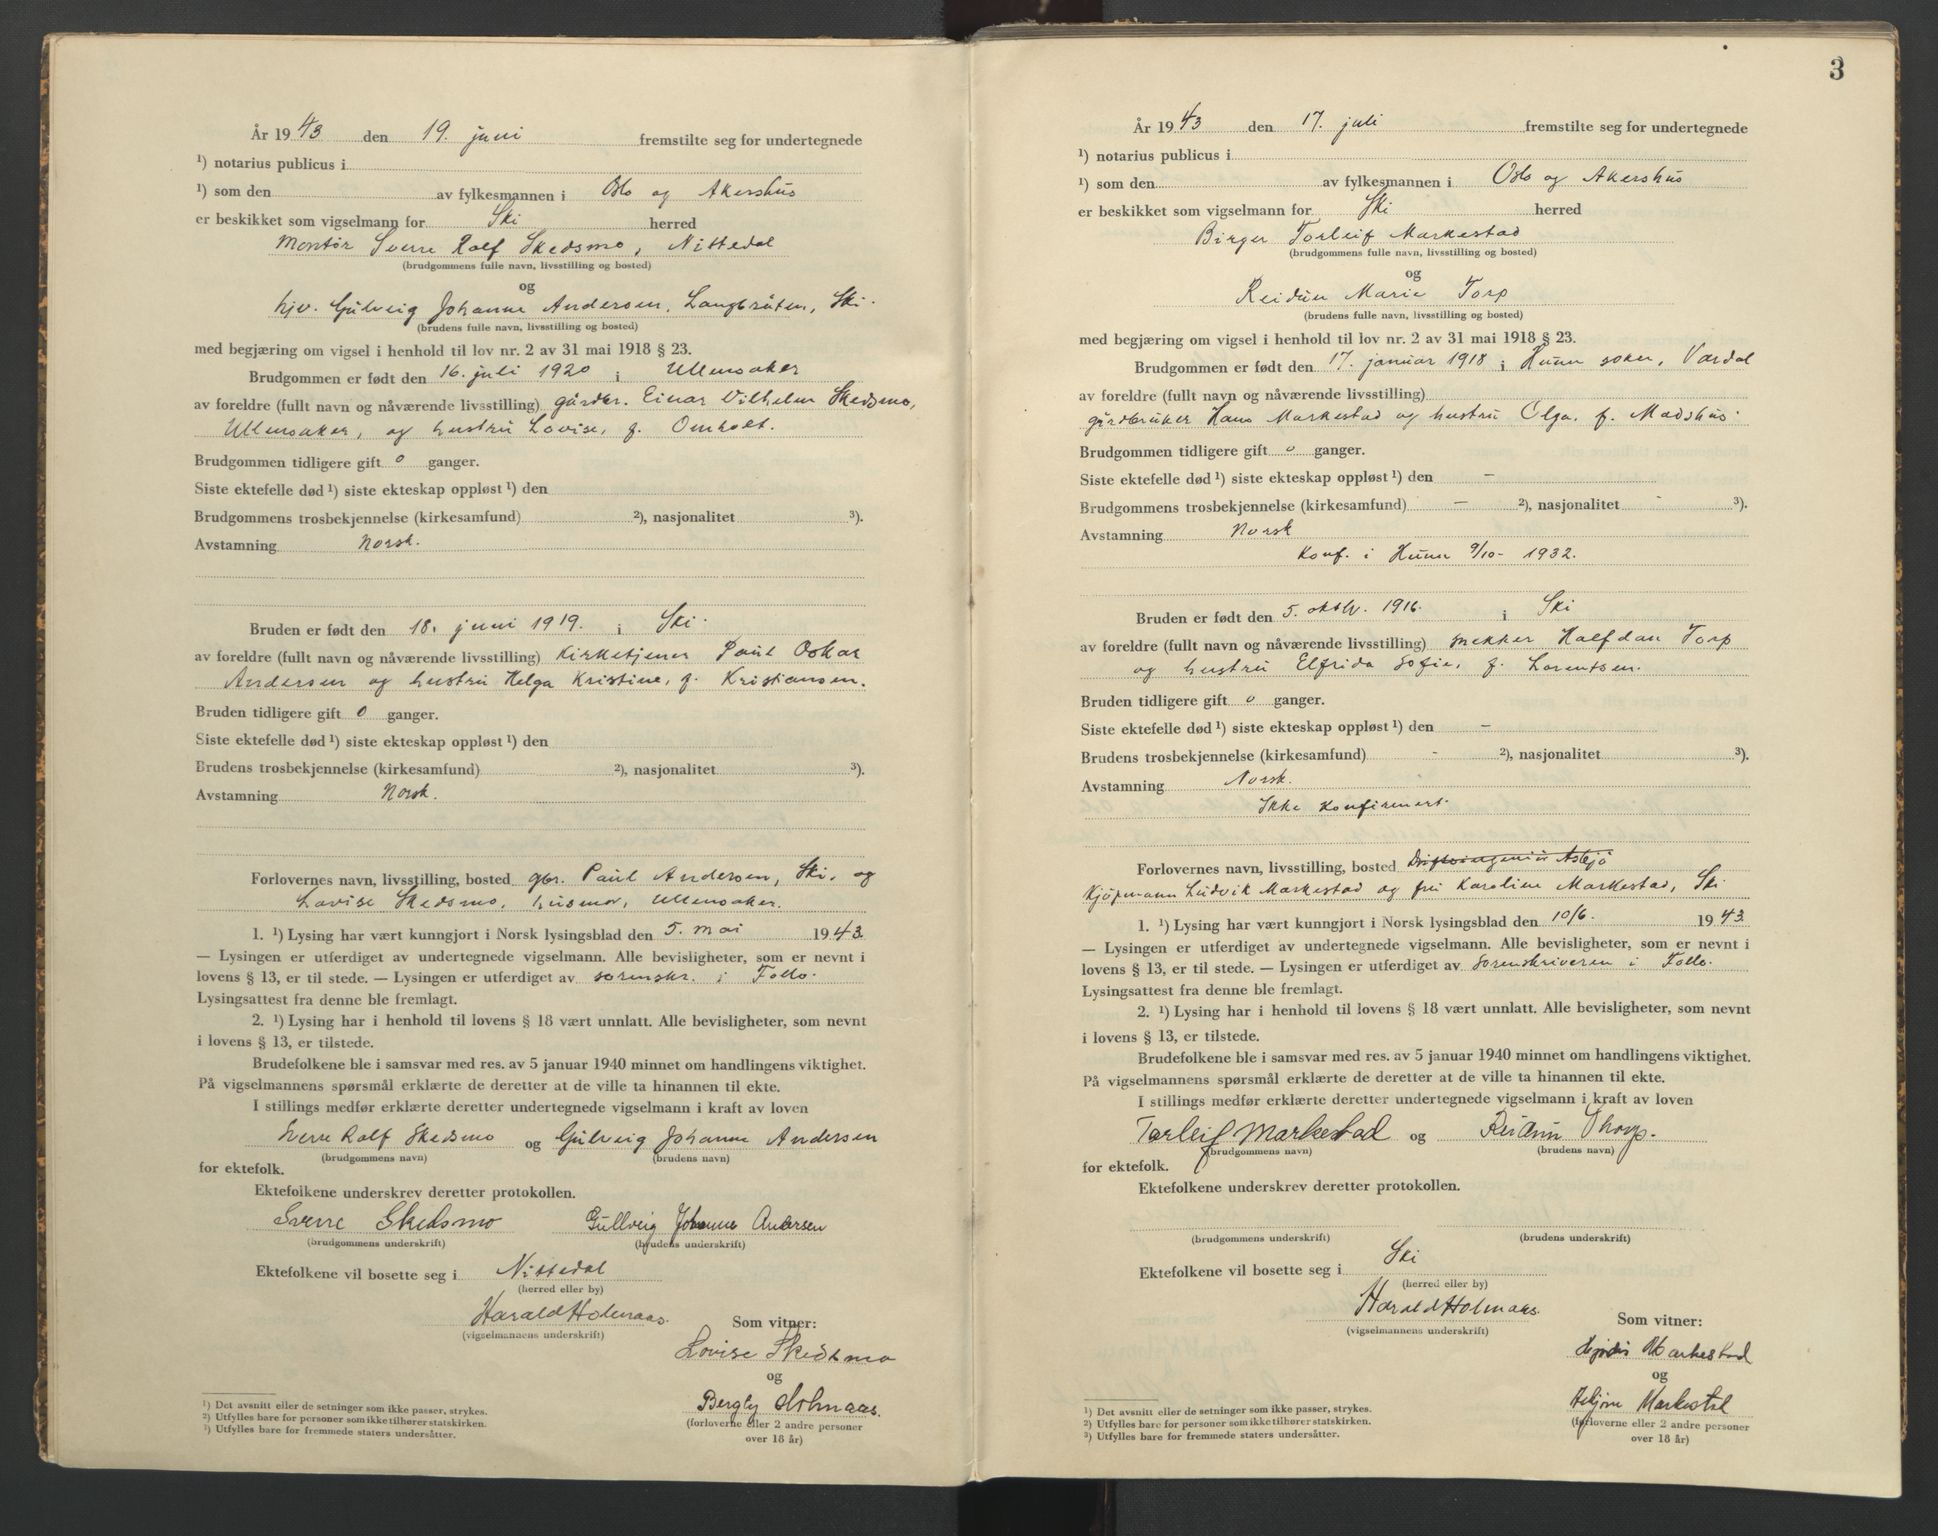 År 1943 den 19. juni fremstilte seg for undertegnede
¹) notarius publicus i
¹) som den av fylkesmannen i Oslo og Akershus
er beskikket som vigselmann for Ski herred
Montør Sverre Rolf Skedsmo, Nittedal
(brudgommens fulle navn, livsstilling og bosted)
og
hjv. Gulveig Johanne Andersen, Langbråten, Ski.
(brudens fulle navn, livsstilling og bosted)
med begjæring om vigsel i henhold til lov nr. 2 av 31 mai 1918 § 23.
Brudgommen er født den 16. juli 1920 i Ullensaker
av foreldre (fullt navn og nåværende livsstilling) gårdbr. Einar Vilhelm Skedsmo,
Ullensaker, og hustru Lovise, f. Omholt.
Brudgommen tidligere gift 0 ganger.
Siste ektefelle død ¹) siste ekteskap oppløst ¹) den
Brudgommens trosbekjennelse (kirkesamfund) ²), nasjonalitet ³).
Avstamning Norsk.
Bruden er født den 18. juni 1919. i Ski.
av foreldre (fullt navn og nåværende livsstilling) Kirketjener Paul Oskar
Andersen og hustru Helga Kristine, f. Kristiansen.
Bruden tidligere gift 0 ganger.
Siste ektefelle død ¹) siste ekteskap oppløst ¹) den
Brudens trosbekjennelse (kirkesamfund) ²), nasjonalitet ³).
Avstamning Norsk.
Forlovernes navn, livsstilling, bosted gbr. Paul Andersen, Ski, og
Lovise Skedsmo, husmor, Ullensaker.
1. ¹) Lysing har vært kunngjort i Norsk lysingsblad den 5. mai 1943
— Lysingen er utferdiget av undertegnede vigselmann. Alle bevisligheter, som er nevnt i
lovens § 13, er til stede. — Lysingen er utferdiget av sorenskr. i Follo.
Lysingsattest fra denne ble fremlagt.
2. ¹) Lysing har i henhold til lovens § 18 vært unnlatt. Alle bevisligheter, som nevnt
i lovens § 13, er tilstede.
Brudefolkene ble i samsvar med res. av 5 januar 1940 minnet om handlingens viktighet.
På vigselmannens spørsmål erklærte de deretter at de ville ta hinannen til ekte.
I stillings medfør erklærte deretter undertegnede vigselmann i kraft av loven
Sverre Rolf Skedsmo og Gulveig Johanne Andersen
(brudgommens navn) (brudens navn)
for ektefolk.
Ektefolkene underskrev deretter protokollen.
Sverre Skedsmo Gullveig Johanne Andersen
(brudgommens underskrift) (brudens underskrift)
Ektefolkene vil bosette seg i Nittedal
(herred eller by)
Harald Holmaas.
(vigselmannens underskrift)
Som vitner:
Lovise Skedsmo
og
Bergly Holmaas.
(forloverne eller 2 andre personer
over 18 år)
¹) Det avsnitt eller de setninger som ikke passer, strykes.
²) Utfylles bare for personer som ikke tilhører statskirken.
³) Utfylles bare for fremmede staters undersåtter.
3
År 1943 den 17. juli fremstilte seg for undertegnede
¹) notarius publicus i
¹) som den av fylkesmannen i Oslo og Akershus
er beskikket som vigselmann for Ski herred
Birger Torleif Markestad
(brudgommens fulle navn, livsstilling og bosted)
og
Reidun Marie Torp
(brudens fulle navn, livsstilling og bosted)
med begjæring om vigsel i henhold til lov nr. 2 av 31 mai 1918 § 23.
Brudgommen er født den 17. januar 1918 i Hunn sokn, Vardal
av foreldre (fullt navn og nåværende livsstilling)
gårdbruker Hans Markestad og hustru Olga, f. Madshus.
Brudgommen tidligere gift 0 ganger.
Siste ektefelle død ¹) siste ekteskap oppløst ¹) den –
Brudgommens trosbekjennelse (kirkesamfund) – ²), nasjonalitet - ³).
Avstamning Norsk
Konf. i Hunn 9/10- 1932.
Bruden er født den 5. oktbr. 1916. i Ski
av foreldre (fullt navn og nåværende livsstilling) snekker Halfdan Torp
og hustru Elfrida Sofie, f. Lorentsen.
Bruden tidligere gift 0 ganger.
Siste ektefelle død ¹) siste ekteskap oppløst ¹) den –
Brudens trosbekjennelse (kirkesamfund) - ²), nasjonalitet ³).
Avstamning Norsk.
Ikke konfirmert.
Forlovernes navn, livsstilling, bosted Driftsingeniør Asbjø
Kjøpmann Ludvik Markestad og fru Karoline Markestad, Ski
1. ¹) Lysing har vært kunngjort i Norsk lysingsblad den 10/6. 1943
— Lysingen er utferdiget av undertegnede vigselmann. Alle bevisligheter, som er nevnt i
lovens § 13, er til stede. — Lysingen er utferdiget av sorenskriveren i Follo.
Lysingsattest fra denne ble fremlagt.
2. ¹) Lysing har i henhold til lovens § 18 vært unnlatt. Alle bevisligheter, som nevnt
i lovens § 13, er tilstede.
Brudefolkene ble i samsvar med res. av 5 januar 1940 minnet om handlingens viktighet.
På vigselmannens spørsmål erklærte de deretter at de ville ta hinannen til ekte.
I stillings medfør erklærte deretter undertegnede vigselmann i kraft av loven
Torleif Markestad og Reidun Thorp.
(brudgommens navn) (brudens navn)
for ektefolk.
Ektefolkene underskrev deretter protokollen.
(brudgommens underskrift) (brudens underskrift)
Ektefolkene vil bosette seg i Ski
(herred eller by)
Harald Holmaas.
(vigselmannens underskrift)
Som vitner:
Hjørdis Markestad
og
Markestad
(forloverne eller 2 andre personer
over 18 år)
¹) Det avsnitt eller de setninger som ikke passer, strykes.
²) Utfylles bare for personer som ikke tilhører statskirken.
³) Utfylles bare for fremmede staters undersåtter.